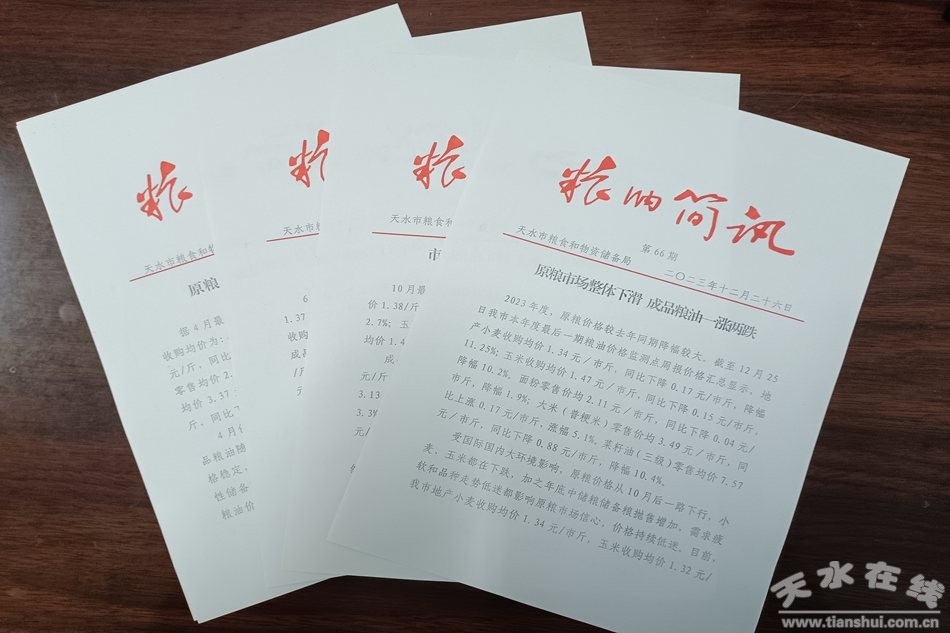 粮油简讯
第66期
天水市粮食和物资储备局
二〇二三年十二月二十六日
原粮市场整体下滑 成品粮油一涨两跌
2023年度，原粮价格较去年同期降幅较大。截至12月25
日我市本年度最后一期粮油价格监测点周报价格汇总显示，地
产小麦收购均价1.34元/市斤，同比下降0.17元/市斤，降幅
11.25%；玉米收购均价1.47元/市斤，同比下降0.15元/市斤，
降幅10.2%。面粉零售价均2.11元/市斤，同比下降0.04元/
市斤，降幅1.9%；大米（普粳米）零售价均3.49元/市斤，同
比上涨0.17元/市斤，涨幅5.1%。菜籽油（三级）零售均价7.57
元/市斤，同比下降0.88元/市斤，降幅10.4%。
受国际国内大环境影响，原粮价格从10月后一路下行，小
麦、玉米都在下跌，加之年底中储粮储备粮抛售增加，需求疲
软和品种走势低迷都影响原粮市场信心，价格持续低迷。目前，
我市地产小麦收购均价1.34元/市斤，玉米收购均价1.32元/
粮
天水市粮食和
市
10月最
价1.38/斤
2.7%；玉
均价1.4
成
元/斤
3.13
3.3%
元/
粮
天水市粮
6
1.37
成品
/斤
元
粮
天水市粮食和物
原粮
据4月最
收购均价为
元/斤，同比
零售均价2.
均价3.37
斤，同比下
4月
品粮油随
格稳定，
性储备
粮油价
天水在线
www.tianshui.com.cn